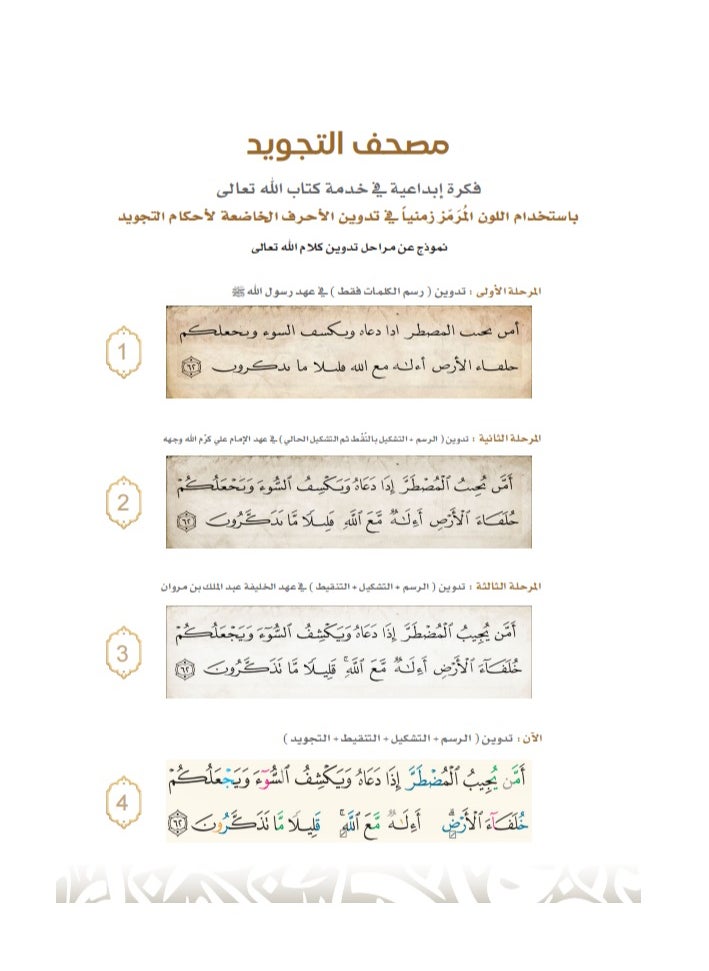 مصحف التجويد
فكرة إبداعية في خدمة كتاب الله تعالى
باستخدام اللون المُرَمّز زمنياً في تدوين الأحرف الخاضعة لأحكام التجويد
نموذج عن مراحل تدوين كلام الله تعالى
المرحلة الأولى : تدوين ( رسم الكلمات فقط ) في عهد رسول الله ﷺ
1
أمں ىحىٮ المصطر ادا دعاه وىكسڡ السوء وىحعلكم
حلڡاء الأرص أءلـٰه مع الله ڡلىلا ما ىدكروں ٦٢
المرحلة الثانية : تدوين ( الرسم + التشكيل بالنّقط ثم التشكيل الحالي ) في عهد الإمام علي كرّم الله وجهه
2
أَمَّں ىُحِىٮُ الْمُصْطَرَّ إِدَا دَعَاهُ وَىَكْسِڡُ السُّوءَ وَىَحْعَلُكُمْ
حُلَڡَاءَ الْأَرْصِ أَءِلَـٰهٌ مَّعَ اللَّهِ ڡَلِىلًا مَّا ىَدَكَّرُوںَ ٦٢
المرحلة الثالثة : تدوين ( الرسم + التشكيل + التنقيط ) في عهد الخليفة عبد الملك بن مروان
3
أَمَّن يُجِيبُ الْمُضْطَرَّ إِذَا دَعَاهُ وَيَكْشِفُ السُّوٓءَ وَيَجْعَلُكُمْ
خُلَفَآءَ الْأَرْضِ أَءِلَـٰهٌ مَّعَ اللَّهِ ۚ قَلِيلًا مَّا تَذَكَّرُونَ ٦٢
الآن : تدوين ( الرسم + التشكيل + التنقيط + التجويد )
4
أَمَّن يُجِيبُ الْمُضْطَرَّ إِذَا دَعَاهُ وَيَكْشِفُ السُّوٓءَ وَيَجْعَلُكُمْ
خُلَفَآءَ الْأَرْضِ أَءِلَـٰهٌ مَّعَ اللَّهِ ۚ قَلِيلًا مَّا تَذَكَّرُونَ ٦٢